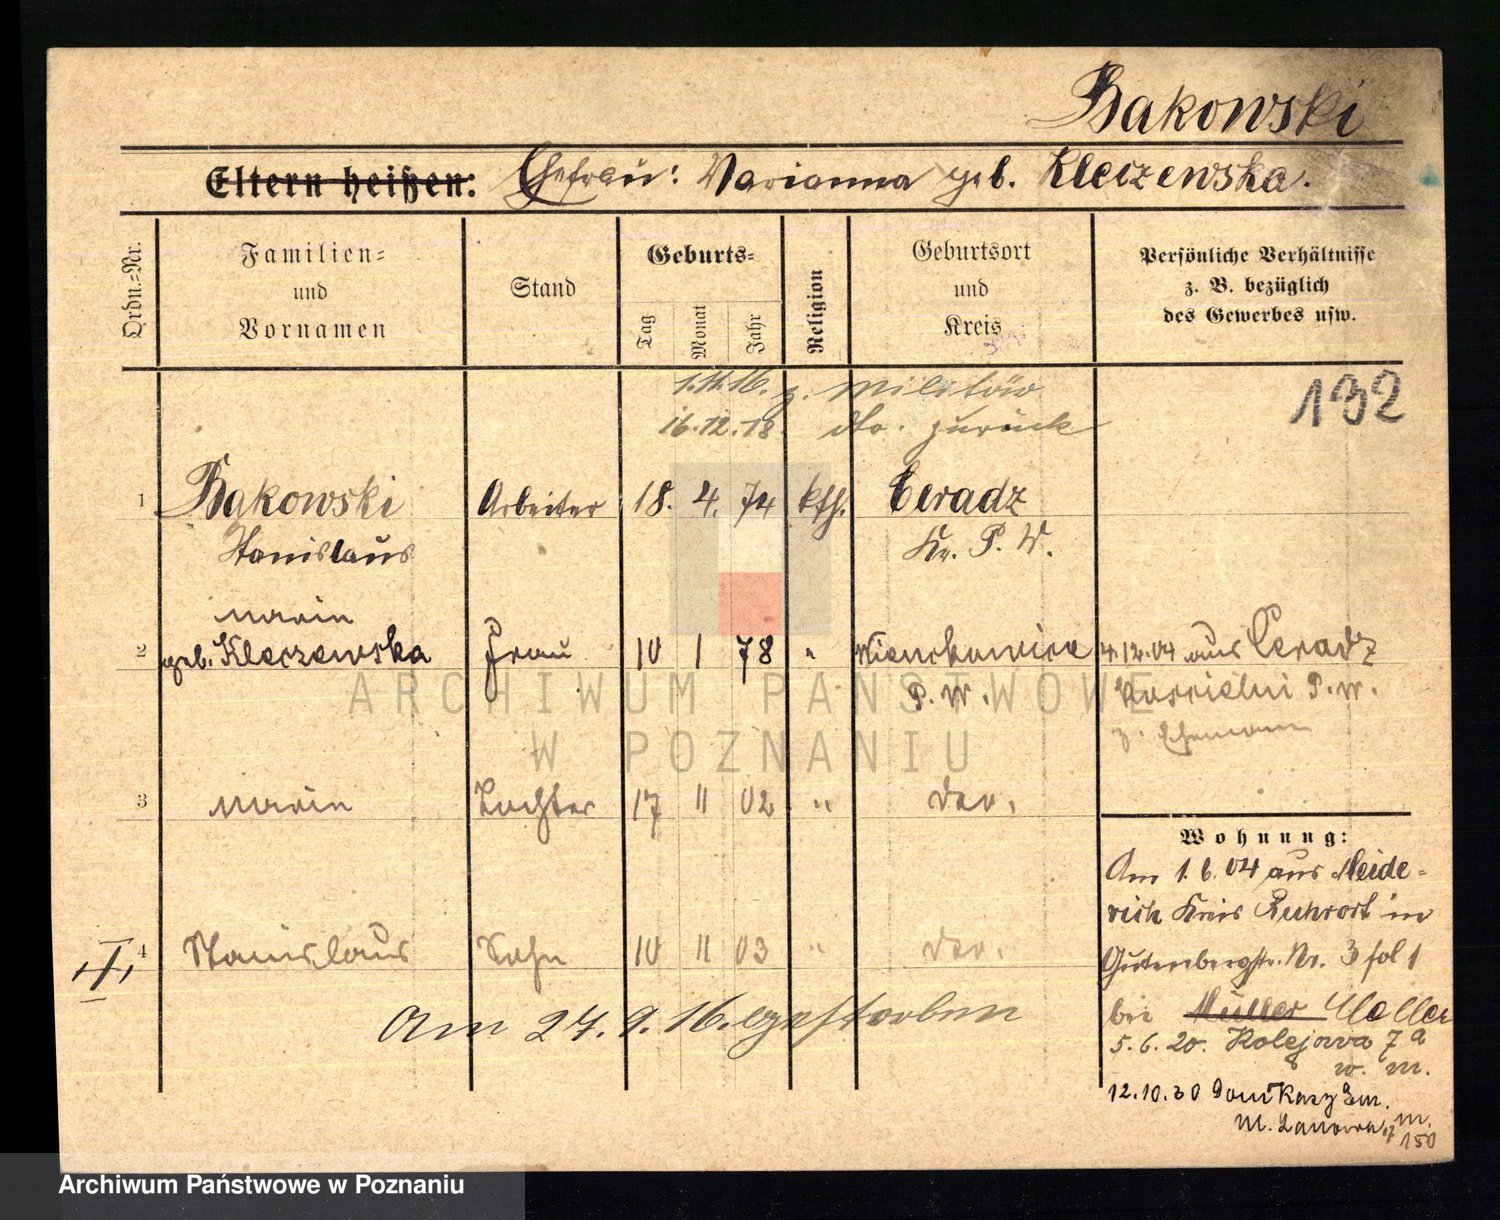 Bąkowski
Eltern heißen: Ehefrau: Marianna geb. Kleczewska.
Ordn.=Nr.
Familien=
und
Vornamen
Stand
Geburts=
Tag
Monat
Jahr
Religion
Geburtsort
und
Kreis
Persönliche Verhältnisse
z. B. bezüglich
des Gewerbes usw.
1.11.16. z. Militär
16.12.18. dto. zurück
132
1 Bąkowski Arbeiter 18. 4. 74 kth. Ceradz
Stanislaus Kr. P. W.
Marie
2 geb. Kleczewska Frau 10 1 78 " P. W.
4.12.04 aus Ceradz
P. W.
z. Ehemann
3 Marie Tochter 17 11 02 " das.
4 Stanislaus Sohn 10 11 03 " das.
Am 24. 9. 16. gestorben
Wohnung:
Am 1.6.04 aus Meide-
rich Kreis Ruhrort in
Gutenbergstr. Nr. 3 fol 1
bei Müller
5.6.20. Kolejowa 7a
w. m.
12.10.30
m.
150
ARCHIWUM PAŃSTWOWE
W POZNANIU
Archiwum Państwowe w Poznaniu